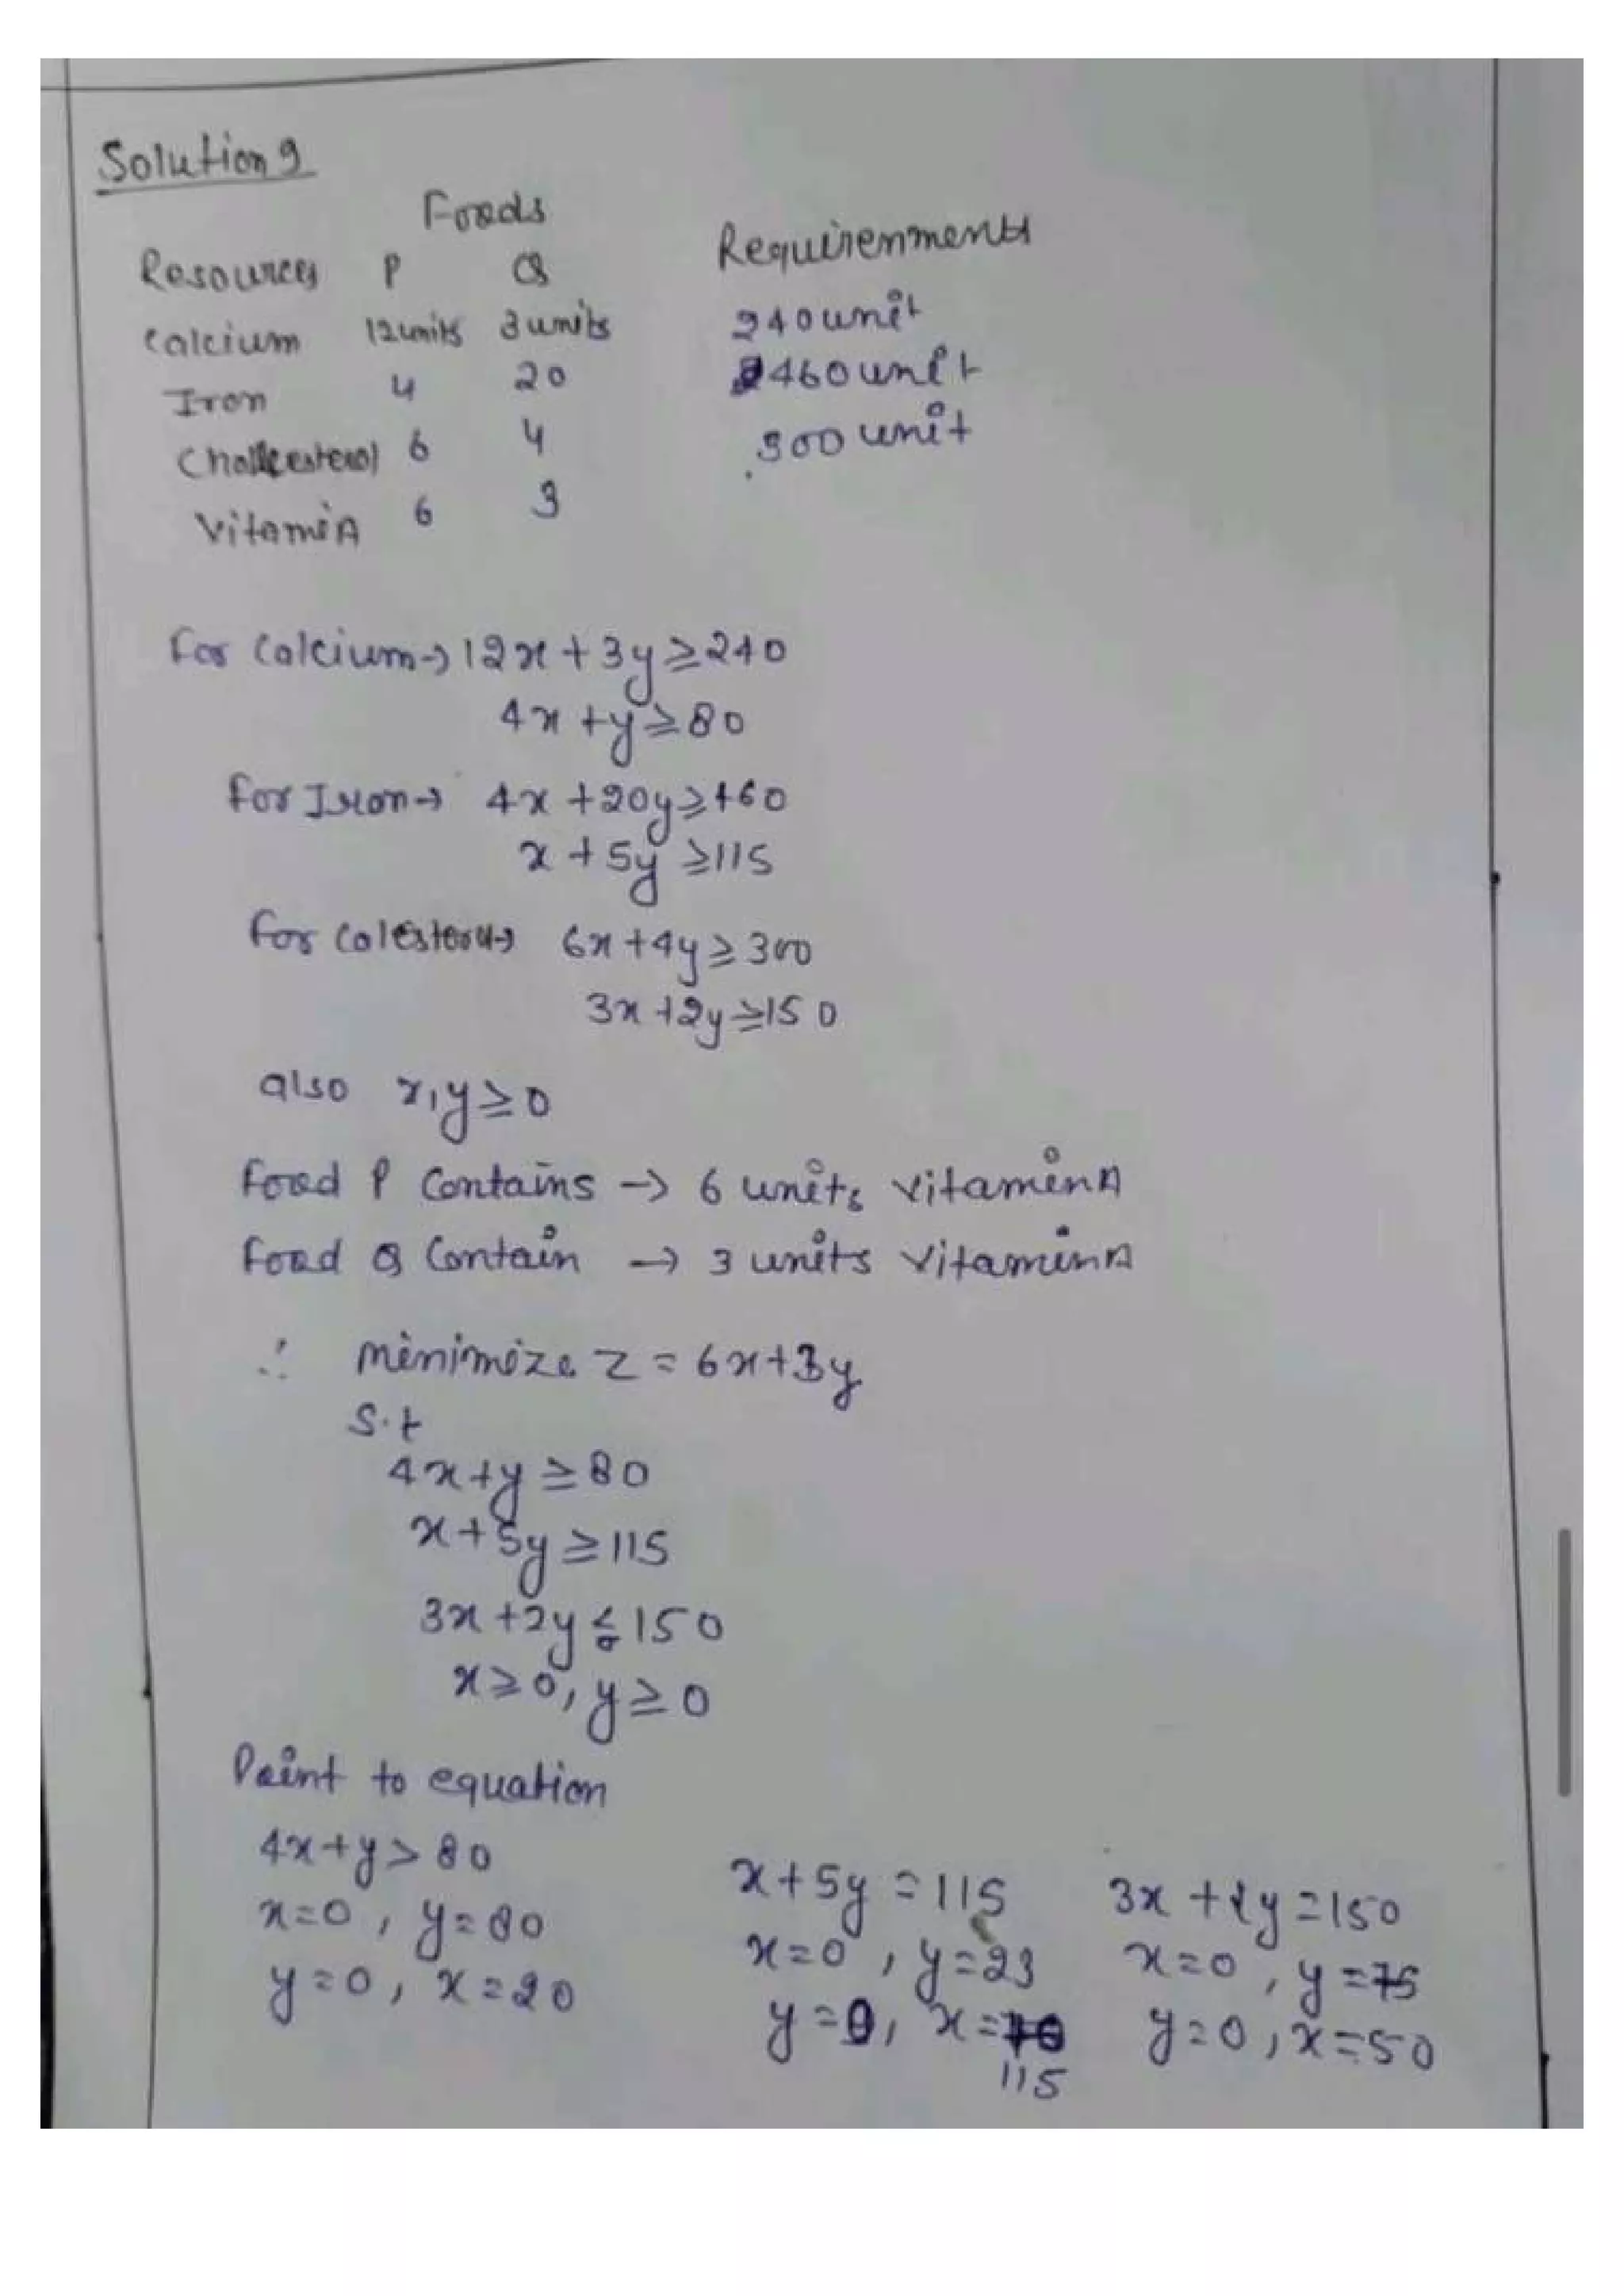 Solution 9
Foods
Resources P Q Requirenments
Calcium 12units 3 units 240 unit
Iron 4 20 460 unit
Cholesterol 6 4 300 unit
VitaminA 6 3
For Calcium → 12x + 3y ≥ 240
4x + y ≥ 80
For Iron → 4x + 20y ≥ 460
x + 5y ≥ 115
For Colesterol → 6x + 4y ≥ 300
3x + 2y ≥ 150
also x, y ≥ 0
Food P Contains → 6 units vitamin A
Food Q Contain → 3 units vitamin A
∴ Minimize Z = 6x + 3y
S.t
4x + y ≥ 80
x + 5y ≥ 115
3x + 2y ≤ 150
x ≥ 0, y ≥ 0
Point to equation
4x + y > 80
x = 0, y = 80
y = 0, x = 20
x + 5y = 115
x = 0, y = 23
y = 0, x = 115
3x + 2y = 150
x = 0, y = 75
y = 0, x = 50